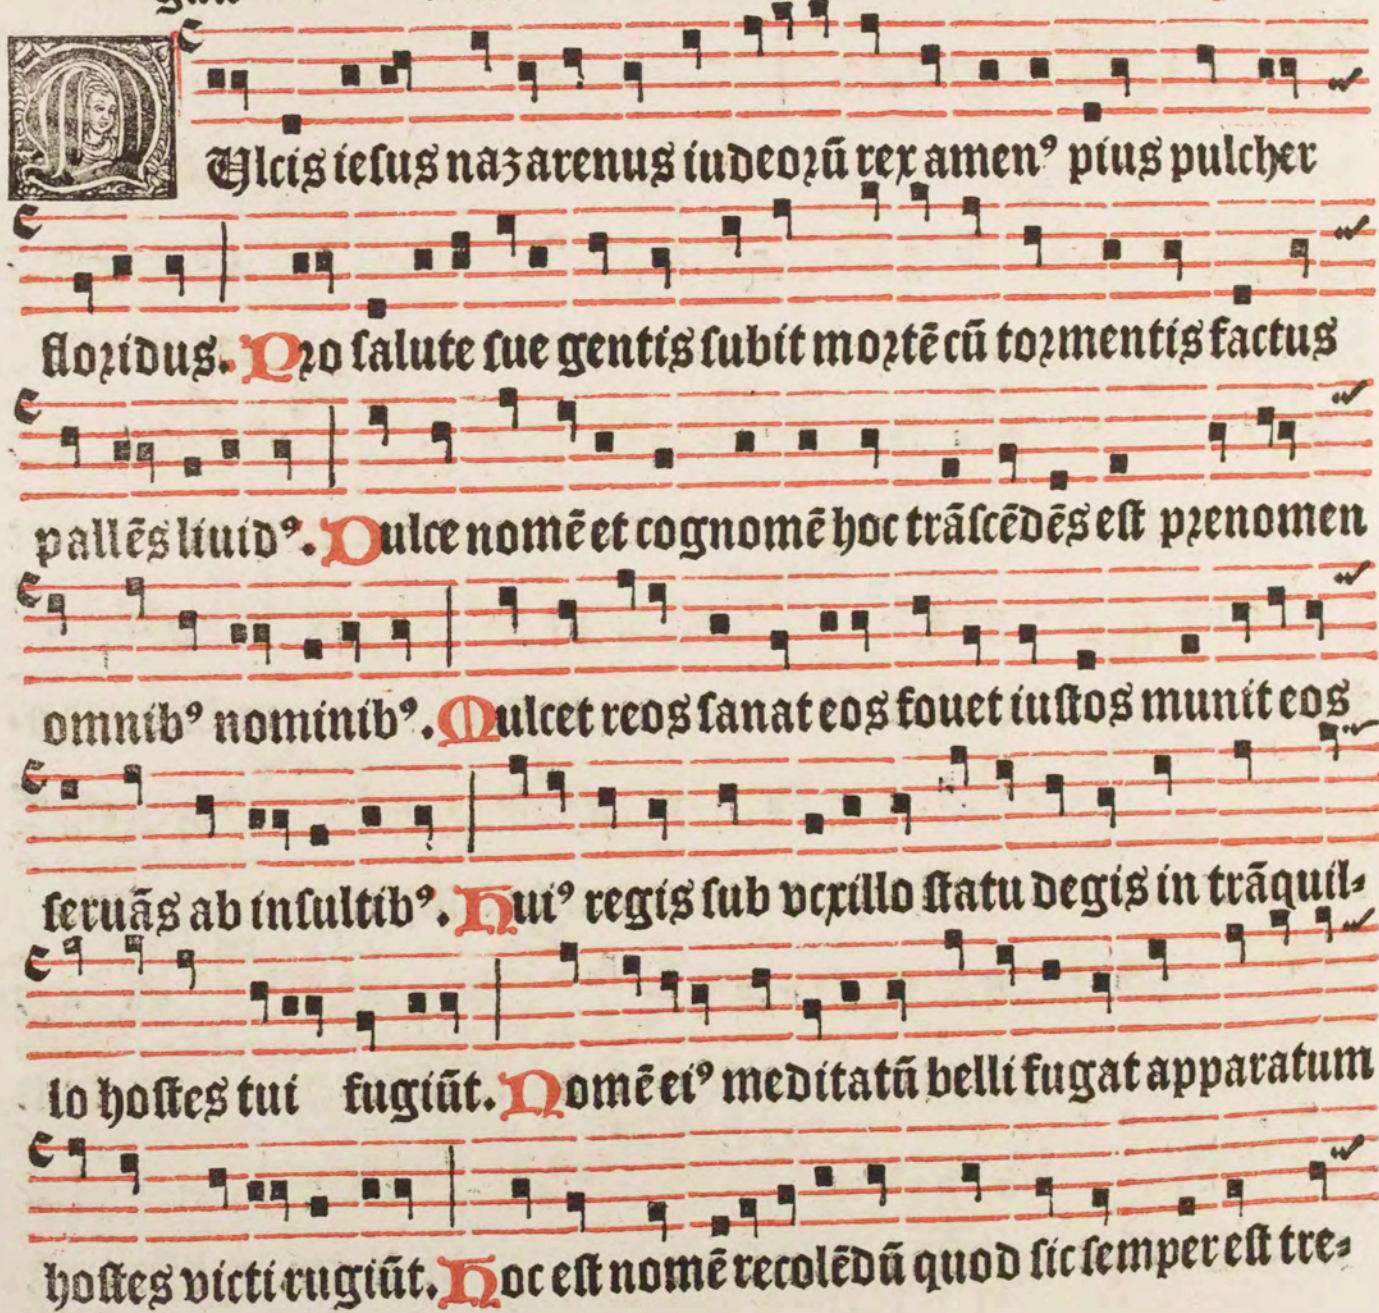 DUlcis iesus nazarenus iudeoꝛū rex amenꝰ pius pulcher
floꝛidus. Pꝛo salute sue gentis subit moꝛtē cū toꝛmentis factus
pallēs liuidꝰ. Dulce nomē et cognomē hoc trāscēdēs est pꝛenomen
omnibꝰ nominibꝰ. Mulcet reos sanat eos fouet iustos munit eos
seruās ab insultibꝰ. Huiꝰ regis sub vexillo statu degis in trāquil⸗
lo hostes tui fugiūt. Nomē eiꝰ meditatū belli fugat apparatum
hostes victi rugiūt. Hoc est nomē recolēdū quod sic semper est tre⸗